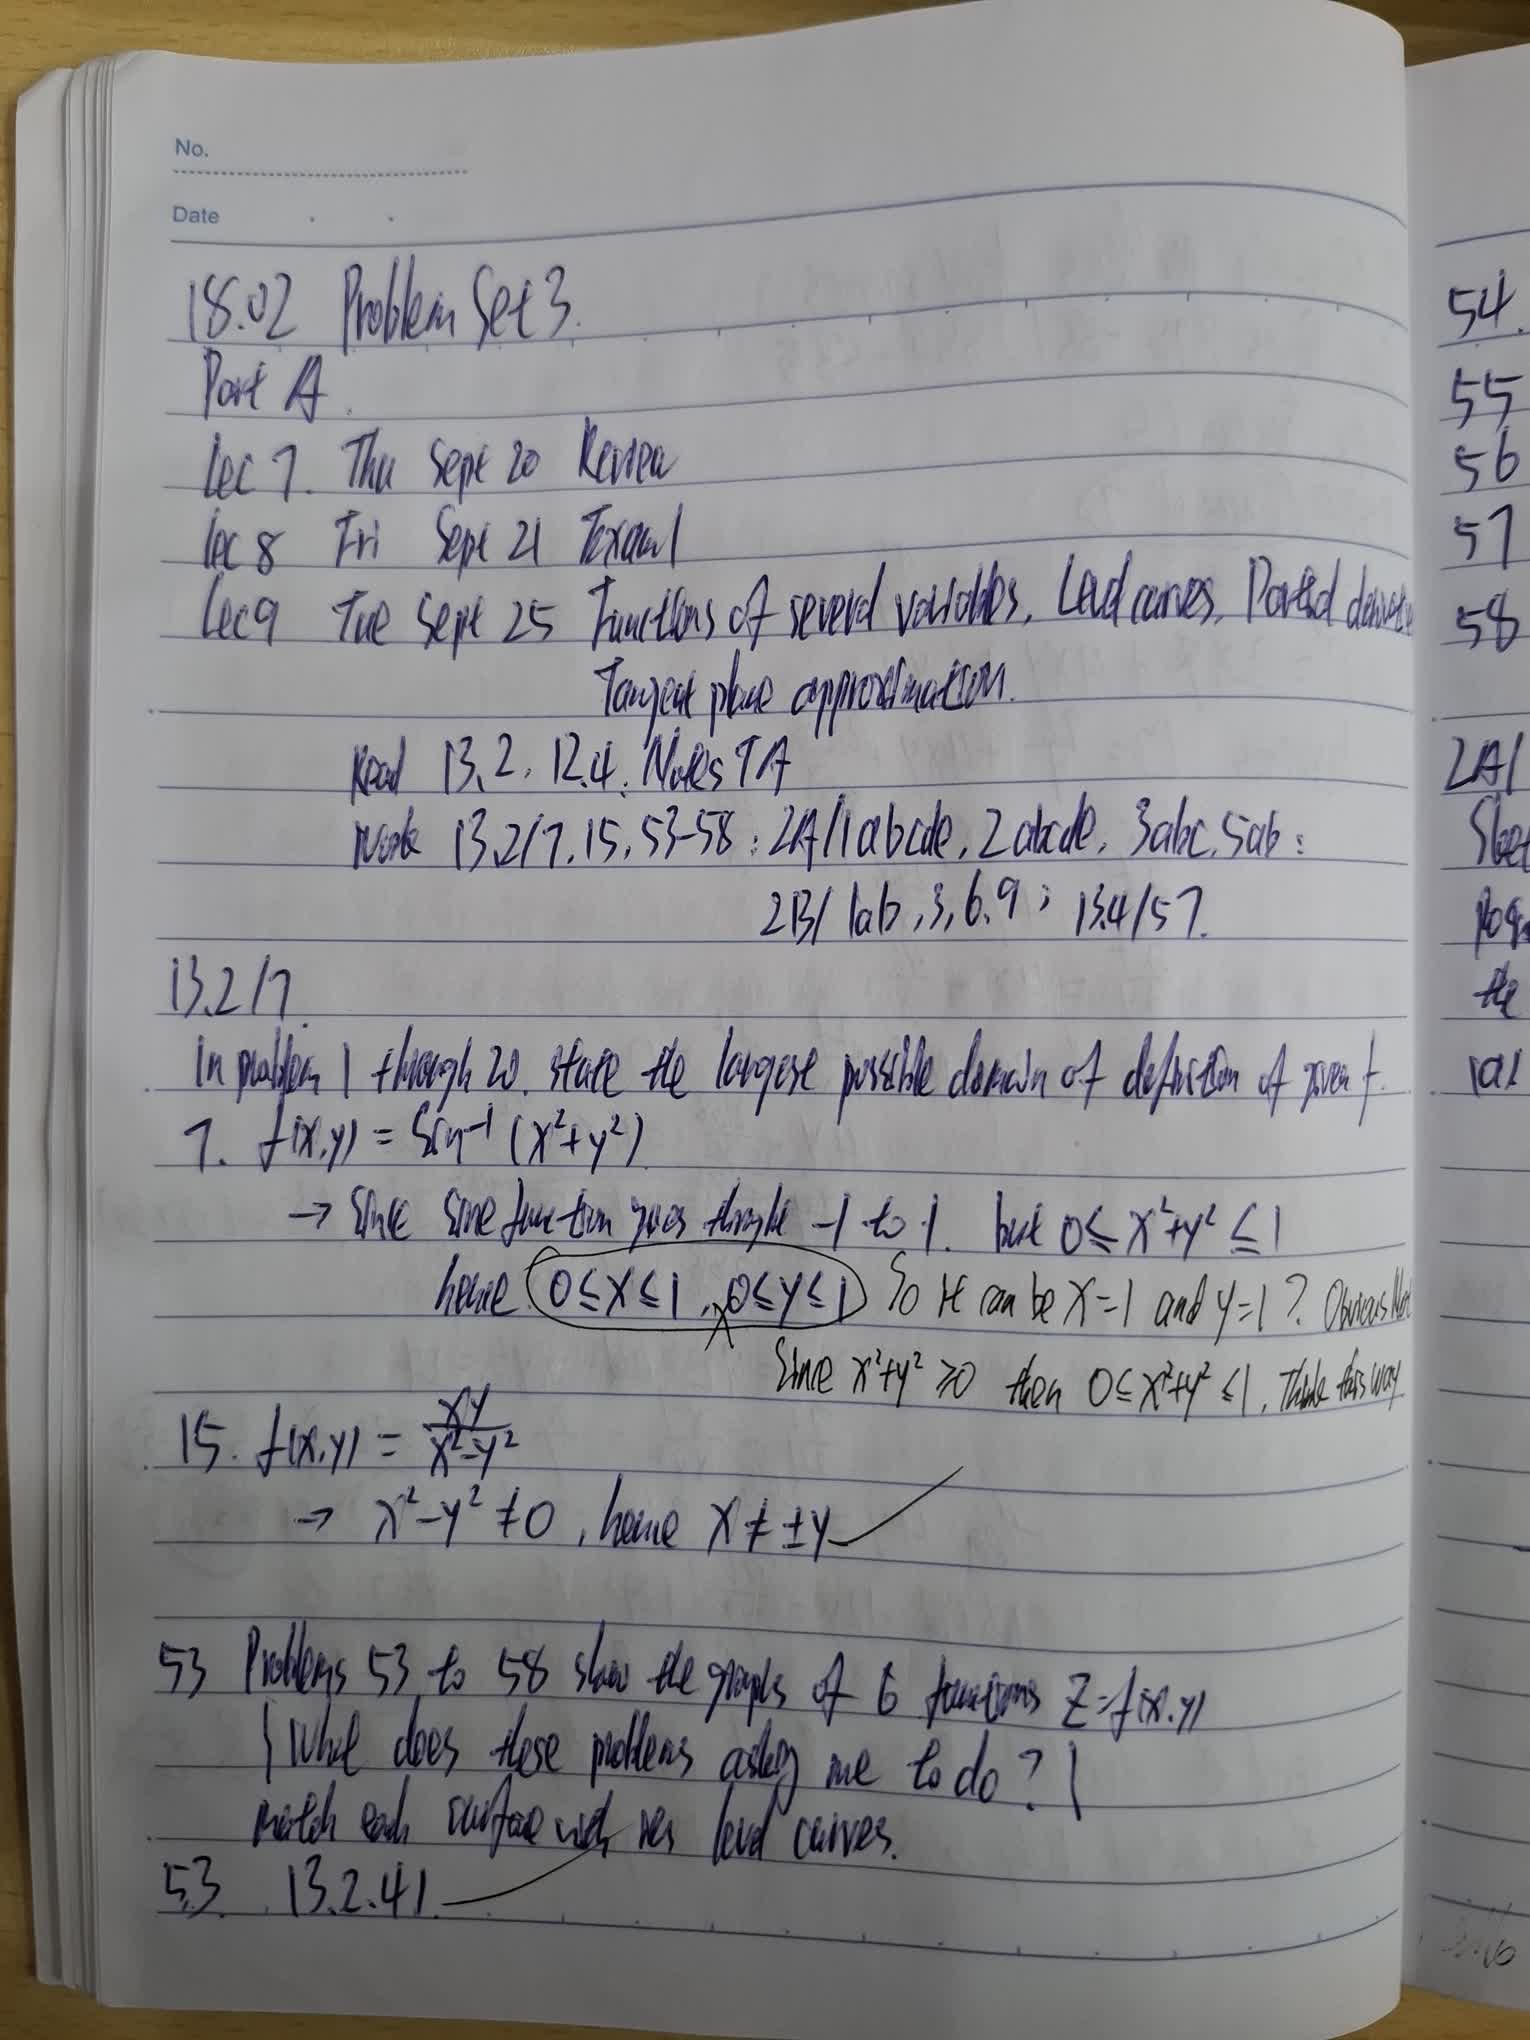 No.
Date
18.02 Problem Set 3.
Part A.
Lec 7. Thu Sept 20 Review
Lec 8 Fri Sept 21 Exam 1
Lec 9 Tue Sept 25 Functions of several variables, Level curves, Partial
Tangent plane approximation.
Read 13.2, 12.4, Notes TA
Work 13.2/7, 15, 53-58; 2A/1abcde, 2abcde, 3abc, 5ab;
2B/1ab, 3, 6, 9; 13.4/57.
13.2/7.
In problem 1 through 20. state the largest possible domain of definition of given f.
7. f(x,y) = Sin⁻¹ (x²+y²)
→ Since Sine function goes -1 to 1. but 0≤x²+y²≤1
hence 0≤x≤1, 0≤y≤1 So it can be x=1 and y=1? Obvious Not
x
Since x²+y² ≥0 then 0≤x²+y²≤1. Think this way
15. f(x,y) = xy / x²-y²
→ x²-y²≠0, hence x≠±y
53 Problems 53 to 58 show the graphs of 6 functions Z=f(x,y)
| What does these problems asking me to do? |
match each surface with its level curves.
53. 13.2.41
54.
55
56
57
58
2A/
the
1a)